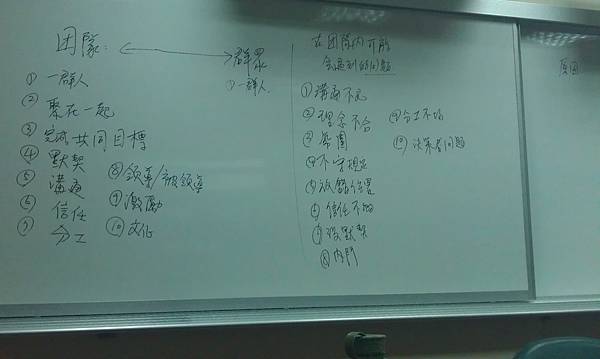 团隊:
① 一群人
② 聚在一起
③ 完成共同目標
④ 默契
⑤ 溝通
⑥ 信任
⑦ 分工
⑧ 領導/被領導
⑨ 激勵
⑩ 文化
群眾
① 一群人
在团隊內可能
會遇到的问題
① 溝通不良
② 理念不合
③
④ 不守規定
⑤
⑥ 信任不夠
⑦ 沒默契
⑧ 內鬥
⑨ 分工不均
⑩ 決策者问題
原因